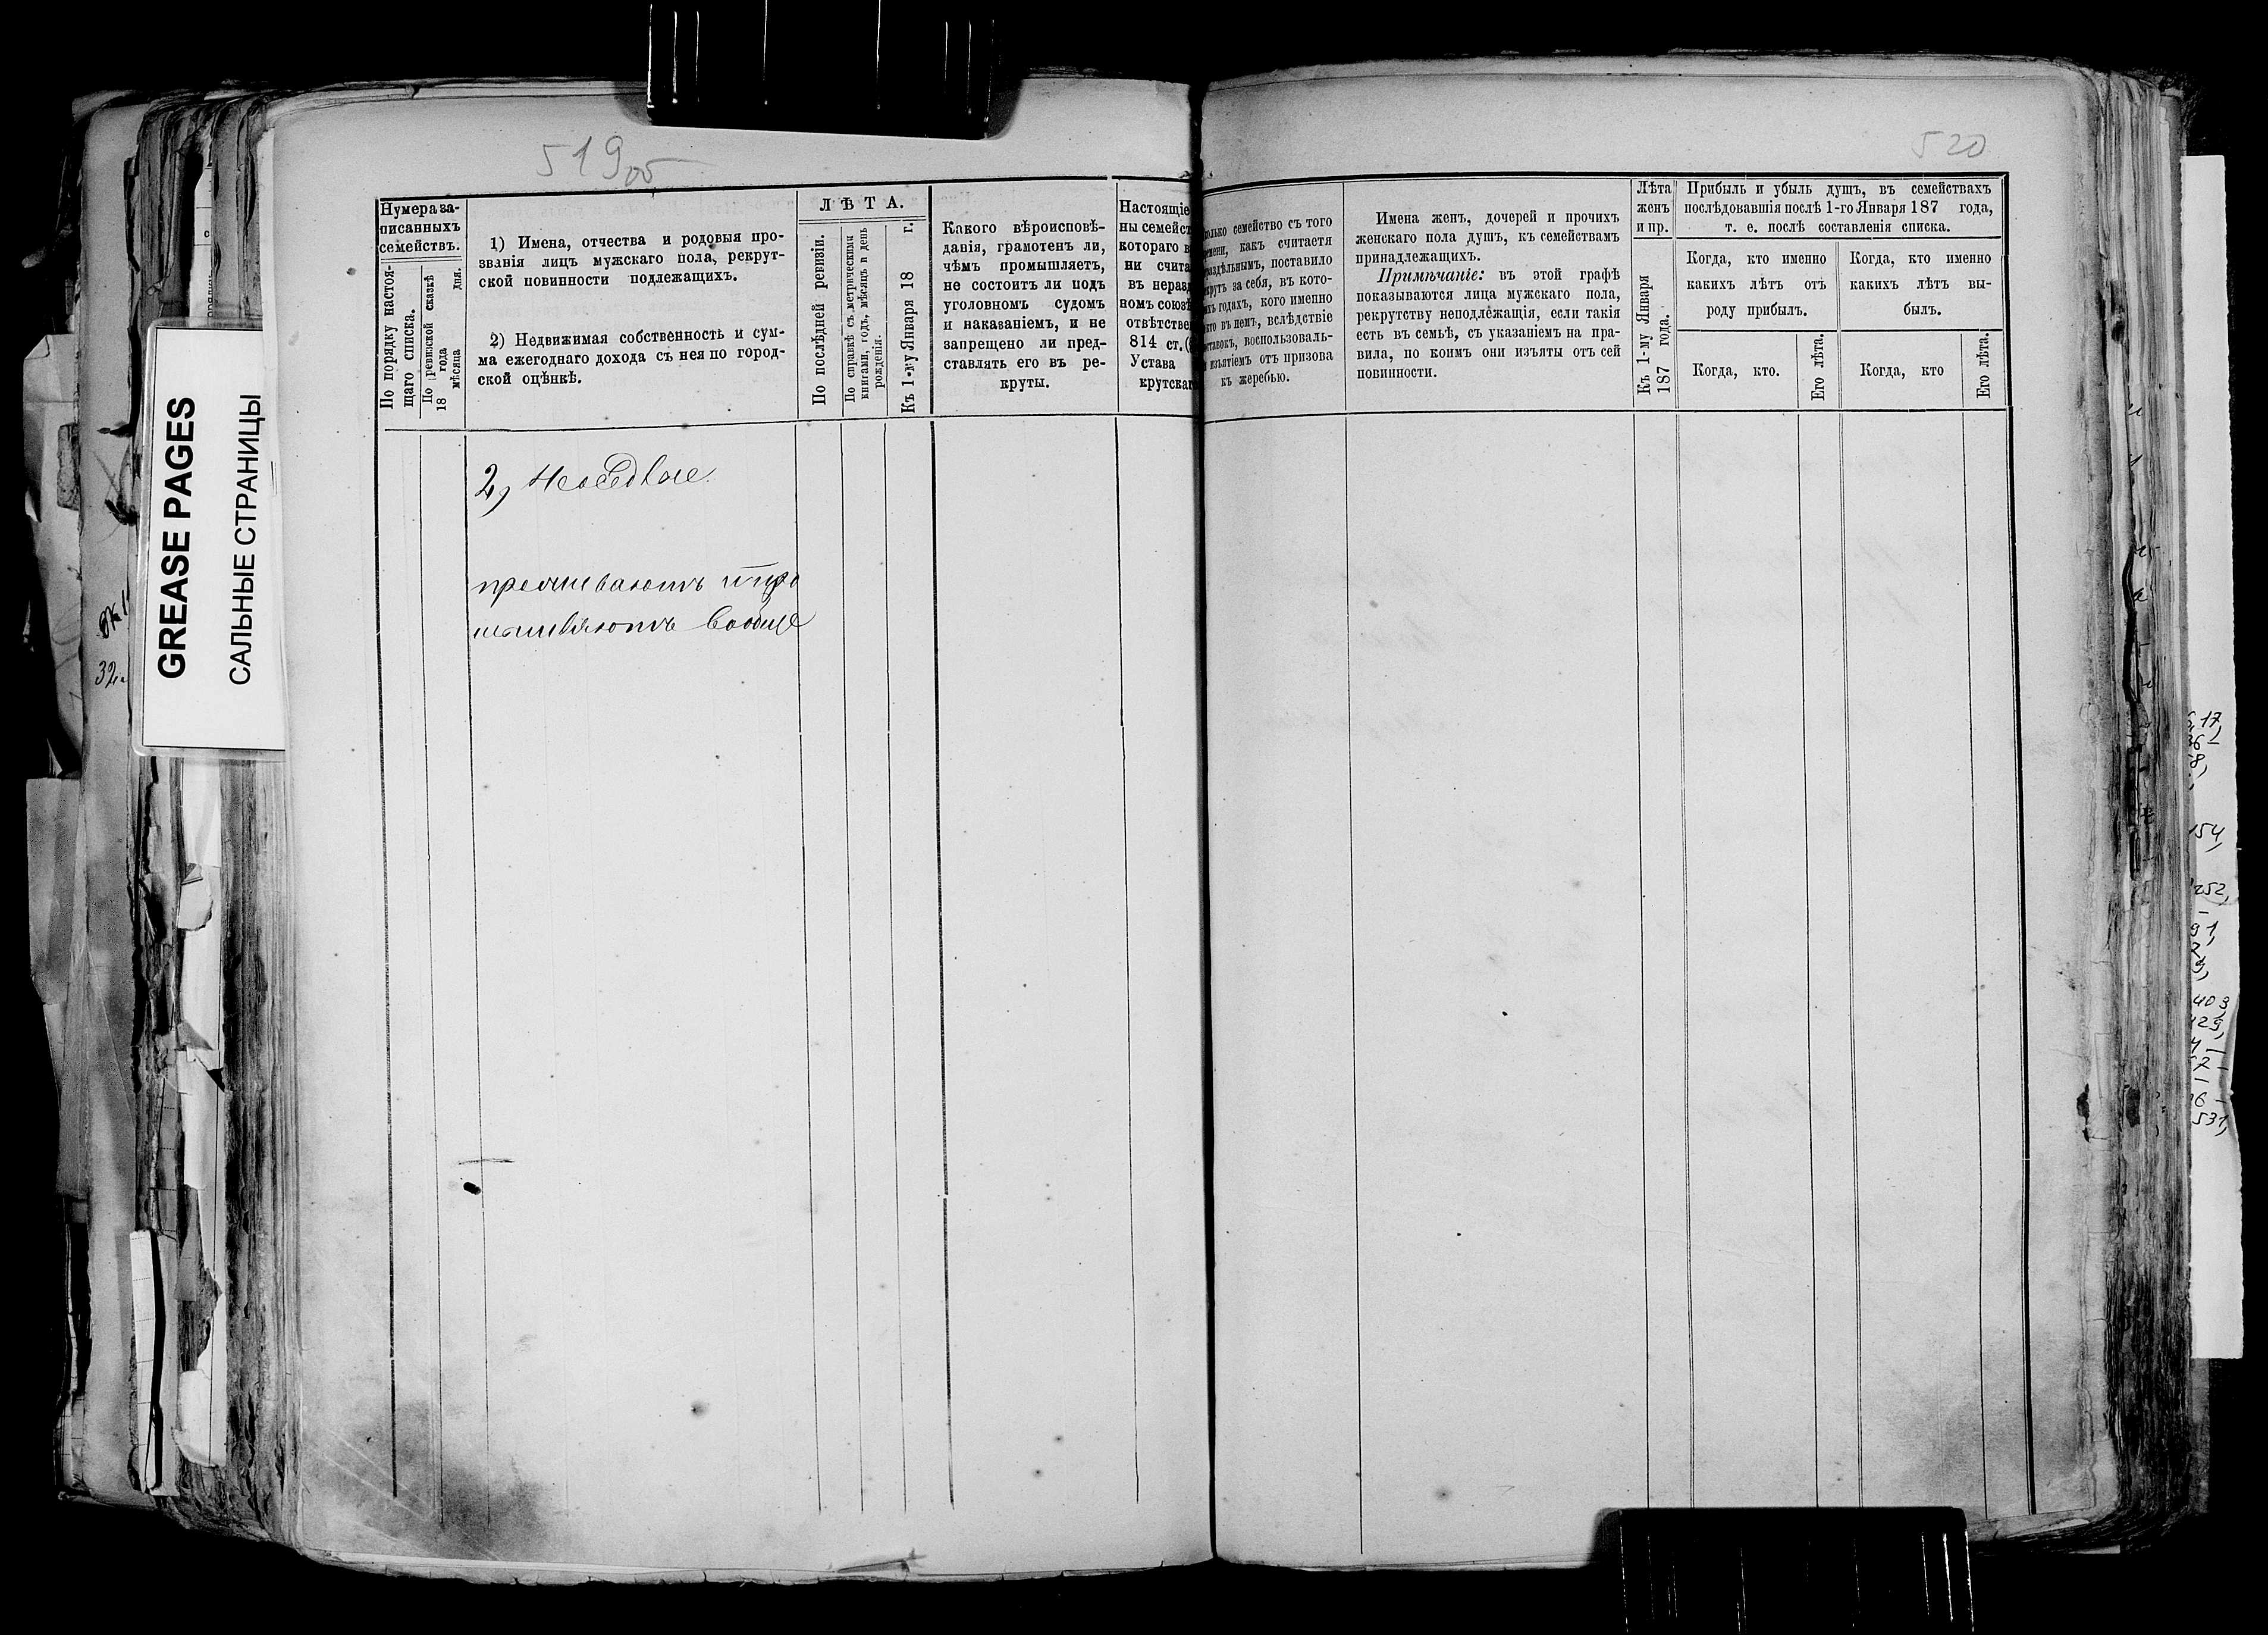 519 об
520
GREASE PAGES
САЛЬНЫЕ СТРАНИЦЫ
Нумера за-
писанныхъ
семействъ.
По порядку настоя-
щаго списка.
По ревизской сказкѣ
18 года
мѣсяца дня.
1) Имена, отчества и родовыя про-
званія лицъ мужскаго пола, рекрут-
ской повинности подлежащихъ.
2) Недвижимая собственность и сум-
ма ежегоднаго дохода съ нея по город-
ской оцѣнкѣ.
ЛѢТА.
По послѣдней ревизіи.
По справкѣ съ метрическими
книгами, годъ, мѣсяцъ и день
рожденія.
Къ 1-му Января 18 г.
Какого вѣроисповѣ-
данія, грамотенъ ли,
чѣмъ промышляетъ,
не состоитъ ли подъ
уголовномъ судомъ
и наказаніемъ, и не
запрещено ли пред-
ставлять его въ ре-
круты.
Настоящіе
ны семейст
котораго в
ни счита
въ неразд
номъ союзѣ
отвѣтстве
814 ст.
Устава
крутскаг
олько семейство съ того
ремени, какъ считаетя
раздѣльнымъ, поставило
крутъ за себя, въ кото-
ыхъ годахъ, кого именно
кто въ немъ, вслѣдствіе
ставокъ, воспользоваль-
я изъятіемъ отъ призова
къ жеребью.
Имена женъ, дочерей и прочихъ
женскаго пола душъ, къ семействамъ
принадлежащихъ.
Примѣчаніе: въ этой графѣ
показываются лица мужскаго пола,
рекрутству неподлежащія, если такія
есть въ семьѣ, съ указаніемъ на пра-
вила, по коимъ они изъяты отъ сей
повинности.
Лѣта
женъ
и пр.
Къ 1-му Января
187 года.
Прибыль и убыль душъ, въ семействахъ
послѣдовавшія послѣ 1-го Января 187 года,
т. е. послѣ составленія списка.
Когда, кто именно
какихъ лѣтъ отъ
роду прибылъ.
Когда, кто именно
какихъ лѣтъ вы-
былъ.
Когда, кто.
Его лѣта.
Когда, кто
Его лѣта.
2,
вообще
32
17,
154,
252,
91,
403
429,
531,